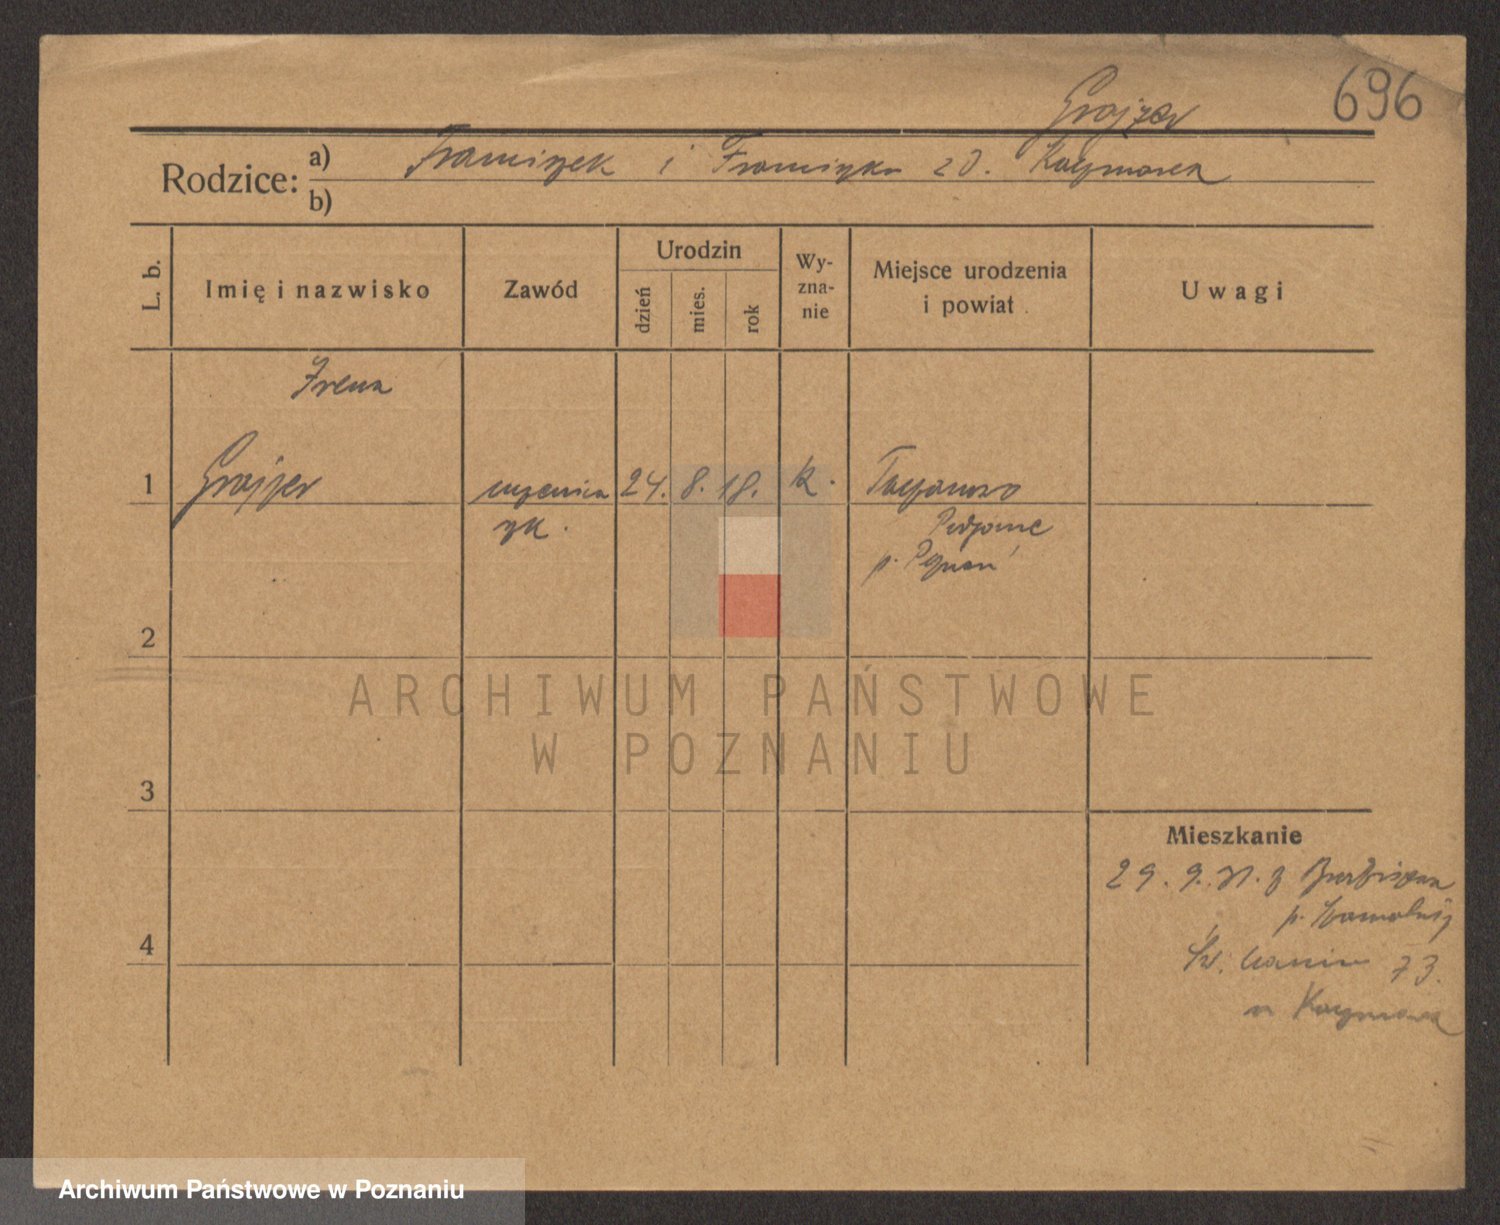 696
Grojzer
Rodzice: a) Franciszek i Franciszka zd. Kaczmarek
b)
L. b.
Imię i nazwisko
Zawód
Urodzin
dzień
mies.
rok
Wy-
zna-
nie
Miejsce urodzenia
i powiat
Uwagi
Irena
1 Grojzer uczenica 24. 8. 18. k.
p. Poznań
2
ARCHIWUM PAŃSTWOWE
W POZNANIU
3
Mieszkanie
29. 9. 31. z
p. Szamotuły
4
Św. Marcin 73.
u Kaczmarek
Archiwum Państwowe w Poznaniu